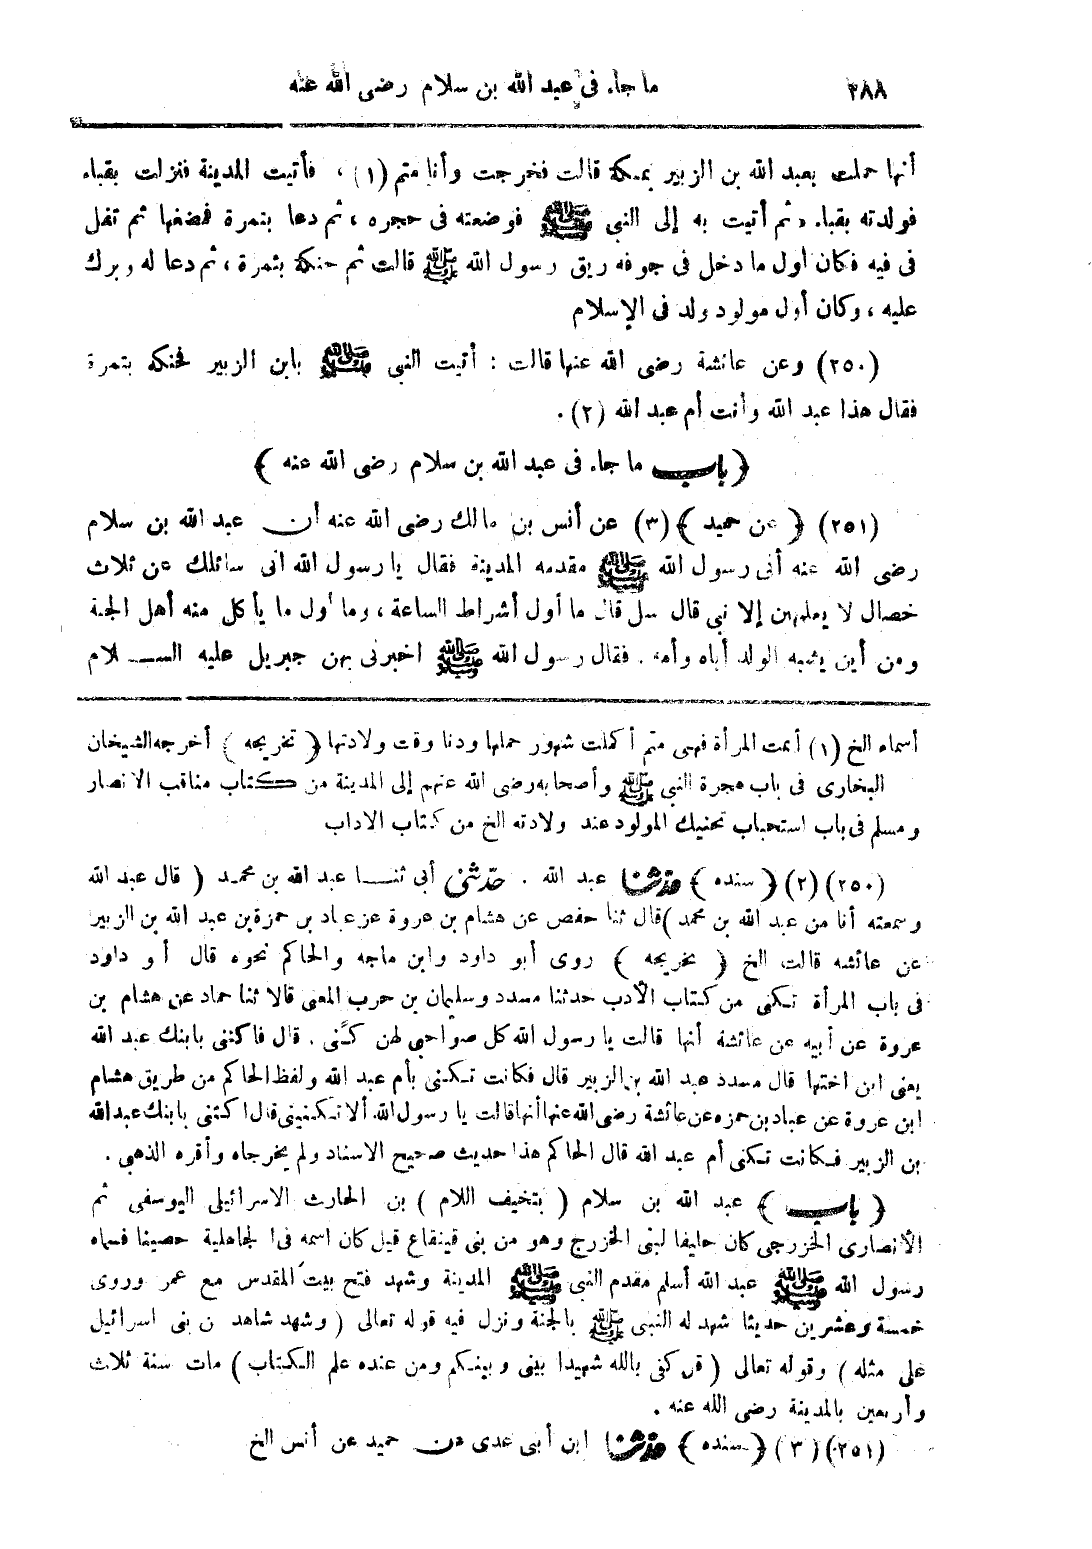 ٣٨٨ ما جاء فى عبد الله بن سلام رضى الله عنه
أنها حملت بعبد الله بن الزبير بمكة قالت فخرجت وأنا متم (١)، فأتيت المدينة فنزلت بقباء
فولدته بقباء، ثم أتيت به إلى النبى ﷺ فوضعته فى حجره، ثم دعا بتمرة فمضغها ثم تفل
فى فيه فكان أول ما دخل فى جوفه ريق رسول الله ﷺ قالت ثم حنكه بتمرة، ثم دعا له وبرك
عليه، وكان أول مولود ولد فى الإسلام
(٢٥٠) وعن عائشة رضى الله عنها قالت: أتيت النبى ﷺ بابن الزبير فحنكه بتمرة
فقال هذا عبد الله وأنت أم عبد الله (٢).
﴿باب ما جاء فى عبد الله بن سلام رضى الله عنه﴾
(٢٥١) ﴿عن حميد﴾ (٣) عن أنس بن مالك رضى الله عنه أن عبد الله بن سلام
رضى الله عنه أتى رسول الله ﷺ مقدمه المدينة فقال يا رسول الله انى سائلك عن ثلاث
خصال لا يعلمهن إلا نبي قال سل قال ما أول أشراط الساعة، وما أول ما يأكل منه أهل الجنة
ومن أين يشبه الولد أباه وأمه. فقال رسول الله ﷺ اخبرنى بهن جبريل عليه الســلام
أسماء الخ (١) أتمت المرأة فهى متم أكملت شهور حملها ودنا وقت ولادتها ﴿تخريجه﴾ أخرجه الشيخان
البخارى فى باب هجرة النبى ﷺ وأصحابه رضى الله عنهم إلى المدينة من كتاب مناقب الانصار
ومسلم فى باب استحباب تحنيك المولود عند ولادته الخ من كتاب الاداب
(٢٥٠) (٢) ﴿سنده﴾ حدثنا عبد الله. حدثنى أبى ثنــا عبد الله بن محمـد (قال عبد الله
وسمعته أنا من عبد الله بن محمد) قال ثنا حفص عن هشام بن عروة عن عباد بن حمزة بن عبد الله بن الزبير
عن عائشه قالت الخ ﴿تخريجه﴾ روى أبو داود وابن ماجه والحاكم نحوه قال أبو داود
فى باب المرأة تكنى من كتاب الأدب حدثنا مسدد وسليمان بن حرب المعنى قالا ثنا حماد عن هشام بن
عروة عن أبيه عن عائشة أنها قالت يا رسول الله كل صواحبى لهن كنًى. قال فاكتنى بابنك عبد الله
يعنى ابن اختها قال مسدد عبد الله بن الزبير قال فكانت تكنى بأم عبد الله ولفظ الحاكم من طريق هشام
ابن عروة عن عباد بن حمزه عن عائشة رضى الله عنها أنها قالت يا رسول الله ألا تكنينى قال اكتنى بابنك عبد الله
بن الزبير فكانت تكنى أم عبد الله قال الحاكم هذا حديث صحيح الاسناد ولم يخرجاه وأقره الذهبى.
﴿باب﴾ عبد الله بن سلام (بتخيف اللام) بن الحارث الاسرائيلى اليوسفى ثم
الأنصارى الخزرجى كان حليفا لبنى الخزرج وهو من بنى قينقاع قيل كان اسمه فى الجاهلية حصينا فسماه
رسول الله ﷺ عبد الله أسلم مقدم النبى ﷺ المدينة وشهد فتح بيت المقدس مع عمر وروى
خمسة وعشرين حديثا شهد له النبى ﷺ بالجنة ونزل فيه قوله تعالى (وشهد شاهد من بنى اسرائيل
على مثله) وقوله تعالى (قل كفى بالله شهيدا بينى وبينكم ومن عنده علم الكتاب) مات سنة ثلاث
وأربعين بالمدينة رضى الله عنه.
(٢٥١) (٣) ﴿سنده﴾ حدثنا ابن أبى عدى عن حميد عن أنس الخ